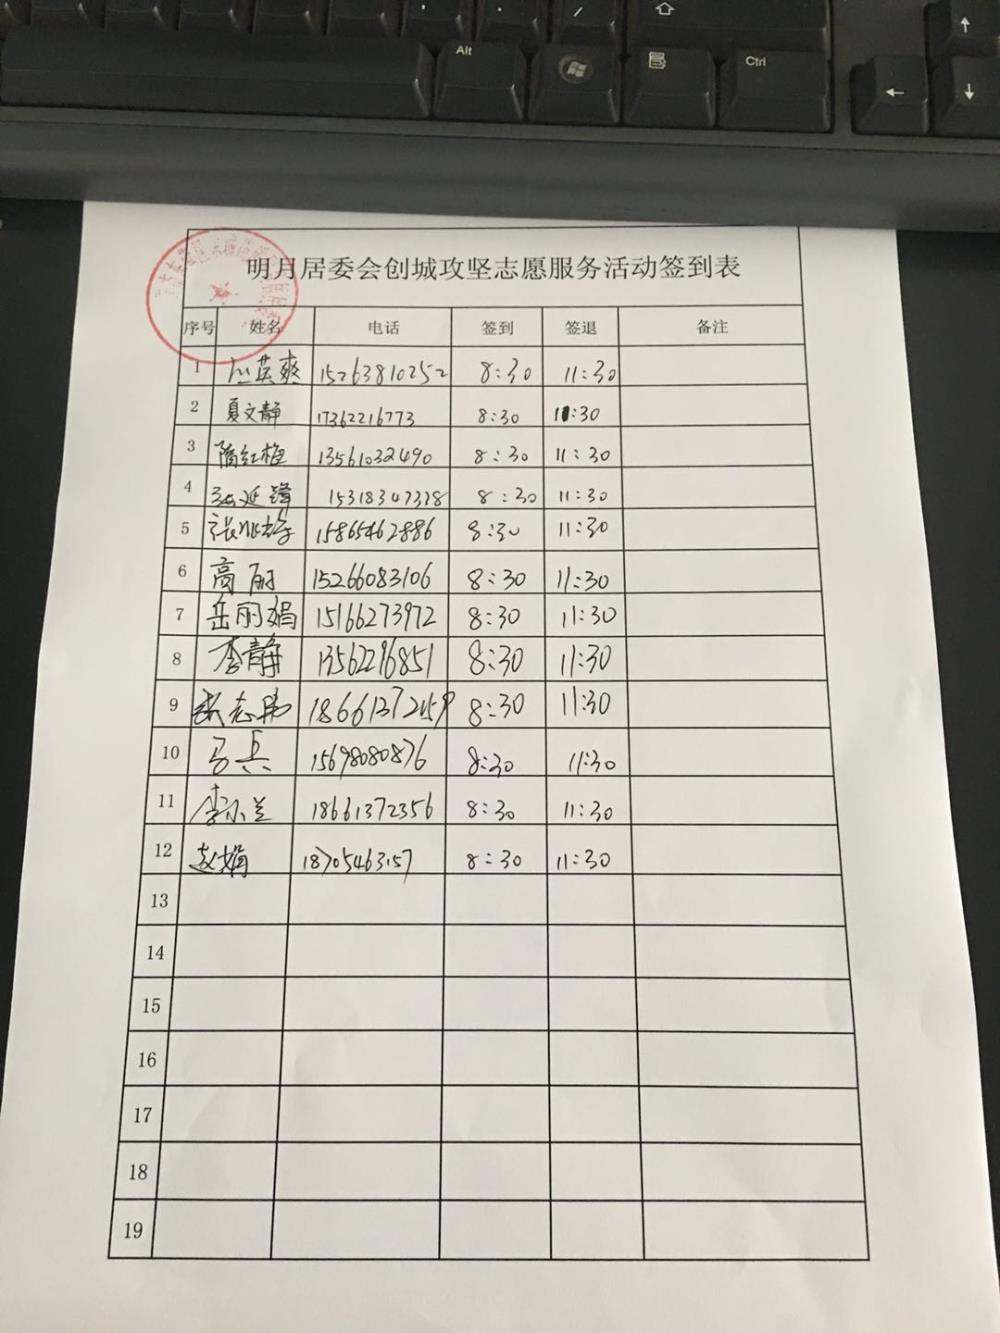 Alt
Ctrl
明月居委会创城攻坚志愿服务活动签到表
序号 姓名 电话 签到 签退 备注
1 英爽 15263810252 8:30 11:30
2 夏文静 17362216773 8:30 11:30
3 隋红梅 13561032490 8:30 11:30
4 延锋 15318347378 8:30 11:30
5 张 15865462886 8:30 11:30
6 高丽 15266083106 8:30 11:30
7 岳丽娟 15166273972 8:30 11:30
8 李静 13562296851 8:30 11:30
9 张志 18661372459 8:30 11:30
10 马兵 15698080876 8:30 11:30
11 李小兰 18661372356 8:30 11:30
12 赵娟 18705463157 8:30 11:30
13
14
15
16
17
18
19